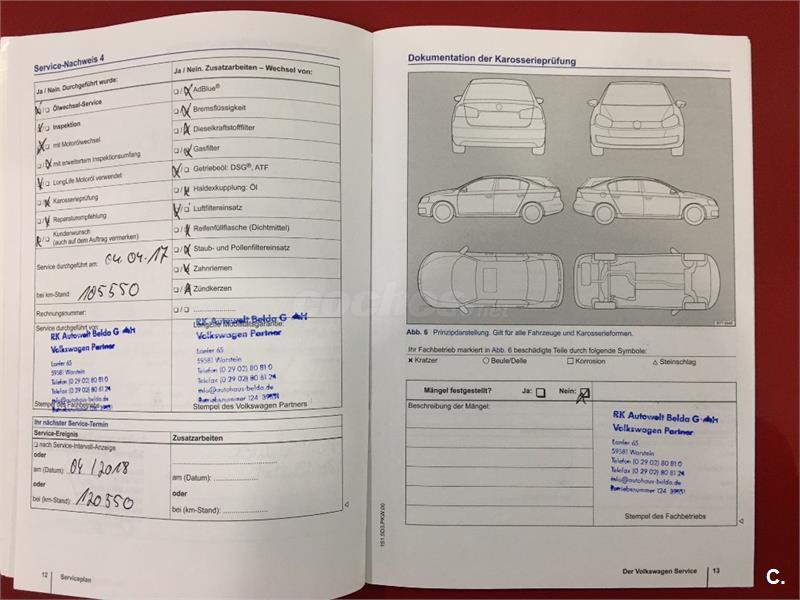 Service-Nachweis 4
Ja / Nein. Durchgeführt wurde:
☒/☐ Ölwechsel-Service
☒/☐ Inspektion
☒/☐ mit Motorölwechsel
☐/☒ mit erweitertem Inspektionsumfang
☒/☐ LongLife Motoröl verwendet
☐/☒ Karosserieprüfung
☐/☒ Reparaturempfehlung
☒/☐ Kundenwunsch
(auch auf dem Auftrag vermerken)
Service durchgeführt am: 04.04.17
bei km-Stand: 105550
Rechnungsnummer:
Service durchgeführt von:
RK Autowelt Belda G H
Volkswagen Partner
Lanfer 65
59581 Warstein
Telefon (0 29 02) 80 81 0
Telefax (0 29 02) 80 81 24
info@autohaus-belda.de
Betriebsnummer 124
Stempel des Fachbetriebs
Ja / Nein. Zusatzarbeiten – Wechsel von:
☐/☒ AdBlue®
☐/☒ Bremsflüssigkeit
☐/☒ Dieselkraftstofffilter
☐/☒ Gasfilter
☒/☐ Getriebeöl: DSG®, ATF
☐/☒ Haldexkupplung: Öl
☒/☐ Luftfiltereinsatz
☐/☒ Reifenfüllflasche (Dichtmittel)
☐/☒ Staub- und Pollenfiltereinsatz
☐/☒ Zahnriemen
☐/☒ Zündkerzen
☐/☐
LongLife Mobilitätsgarantie:
RK Autowelt Belda G H
Volkswagen Partner
Lanfer 65
59581 Warstein
Telefon (0 29 02) 80 81 0
Telefax (0 29 02) 80 81 24
info@autohaus-belda.de
Betriebsnummer 124 39551
Stempel des Volkswagen Partners
Ihr nächster Service-Termin
Service-Ereignis
☐ nach Service-Intervall-Anzeige
oder
am (Datum): 04/2018
oder
bei (km-Stand): 120.550
Zusatzarbeiten
am (Datum):
oder
bei (km-Stand):
12 Serviceplan
Dokumentation der Karosserieprüfung
Abb. 6 Prinzipdarstellung. Gilt für alle Fahrzeuge und Karosserieformen.
Ihr Fachbetrieb markiert in Abb. 6 beschädigte Teile durch folgende Symbole:
× Kratzer ○ Beule/Delle ☐ Korrosion △ Steinschlag
Mängel festgestellt? Ja: ☐ Nein: ☒
Beschreibung der Mängel:
RK Autowelt Belda G H
Volkswagen Partner
Lanfer 65
59581 Warstein
Telefon (0 29 02) 80 81 0
Telefax (0 29 02) 80 81 24
info@autohaus-belda.de
Betriebsnummer 124 39551
Stempel des Fachbetriebs
151.5D3.PKW.00
Der Volkswagen Service 13
coches.net
C.